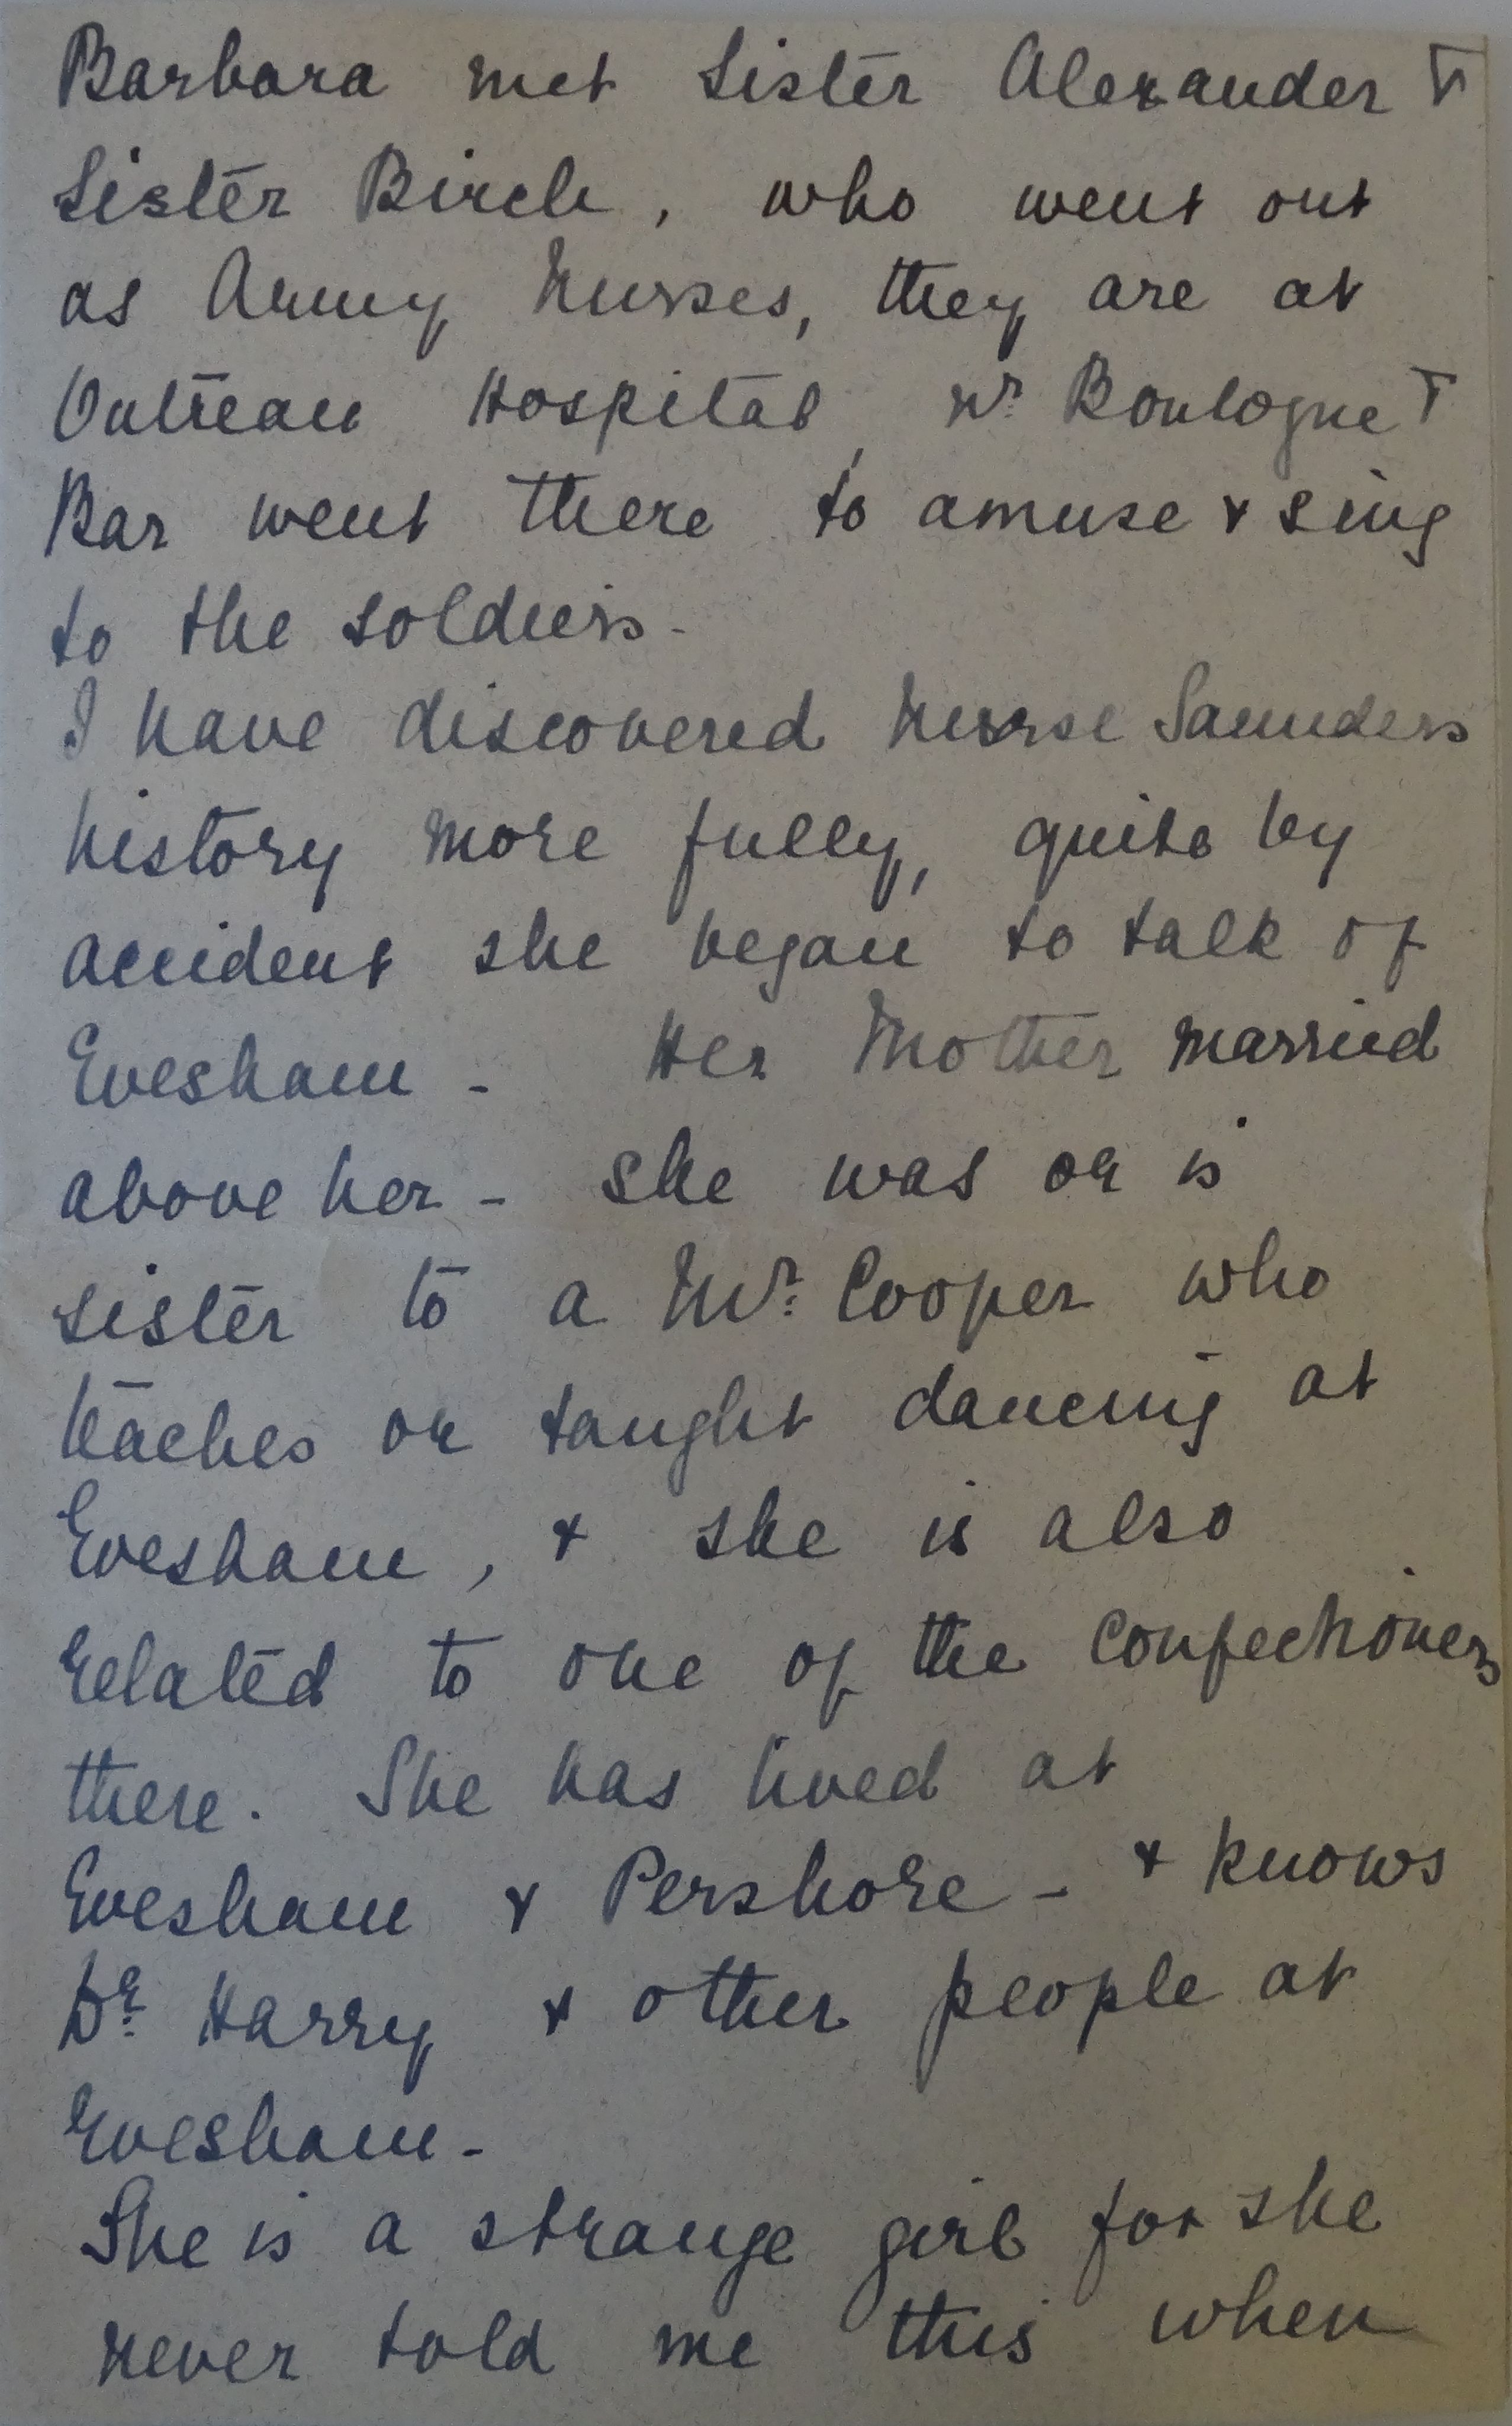 Barbara met Sister Alexander &
Sister Birch, who went out
as Army Nurses, they are at
Outreau Hospital, nr Boulogne &
Bar went there to amuse & sing
to the soldiers -
I have discovered Nurse Saunders
history more fully, quite by
accident she began to talk of
Evesham - Her Mother married
above her - she was or is
sister to a Mr. Cooper who
teaches or taught dancing at
Evesham, & she is also
related to one of the Confectioners
there. She has lived at
Evesham & Pershore - & knows
Dr. Harry & other people at
Evesham -
She is a strange girl for she
never told me this when